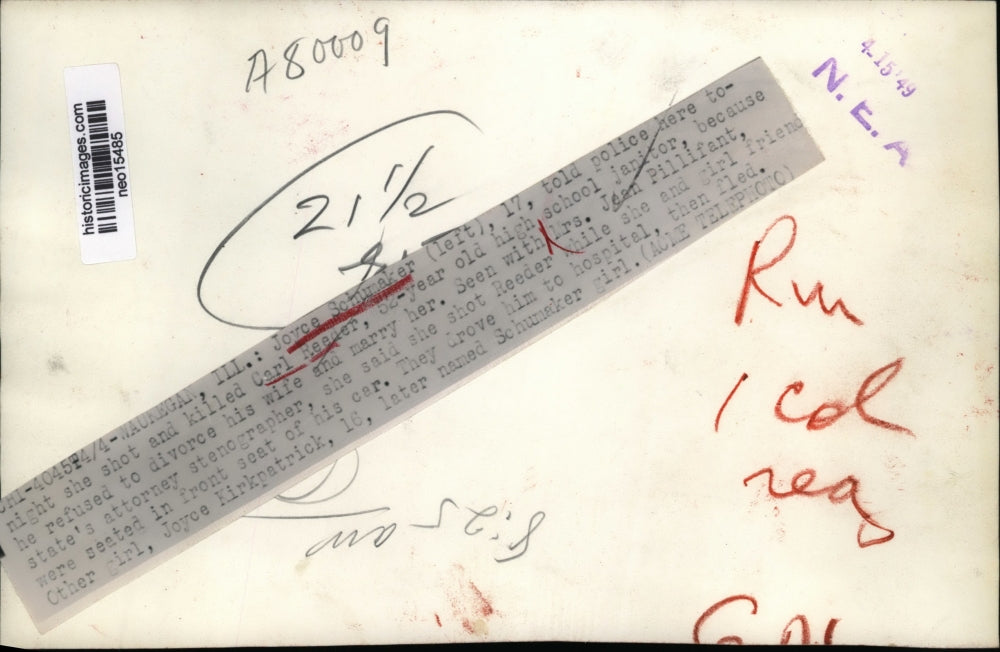 A80009
4-15'49
N. E. A
historicimages.com
neo15485
21 1/2
CHI-404594/4-WAUKEGAN, ILL.: Joyce Schumaker (left), 17, told police here to-
night she shot and killed Carl Reeder, 52-year old high school janitor, because
he refused to divorce his wife and marry her. Seen with Mrs. Jean Pillifant,
state's attorney stenographer, she said she shot Reeder while she and girl friend
were seated in front seat of his car. They drove him to hospital, then fled.
Other girl, Joyce Kirkpatrick, 16, later named Schumaker girl. (ACME TELEPHOTO)
Rm
1 col
reg
8:25 am